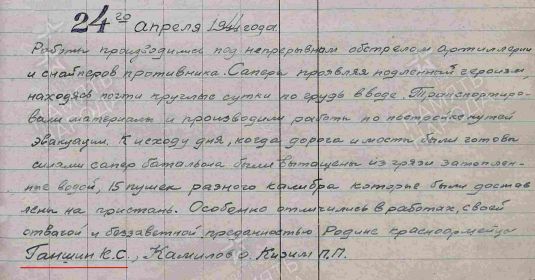 24го апреля 1944 года.
Работы производились под непрерывном обстрелом артиллерии
и снайперов противника. Сапера проявляя подленный героизм,
находясь почти круглые сутки по грудь в воде. Транспортиро-
вали материалы и производили работы по постройке путей
эвакуации. К исходу дня, когда дорога и мосты были готовы
силами сапер батальона были вытащены из грязи затоплен-
ные водой, 15 пушек разного калибра которые были достав
лены на пристань. Особенно отличились в работах, своей
отвагой и беззаветной преданностью Родине красноармейцы
Ганшин К.С., Камилов о. Кизим П.П.